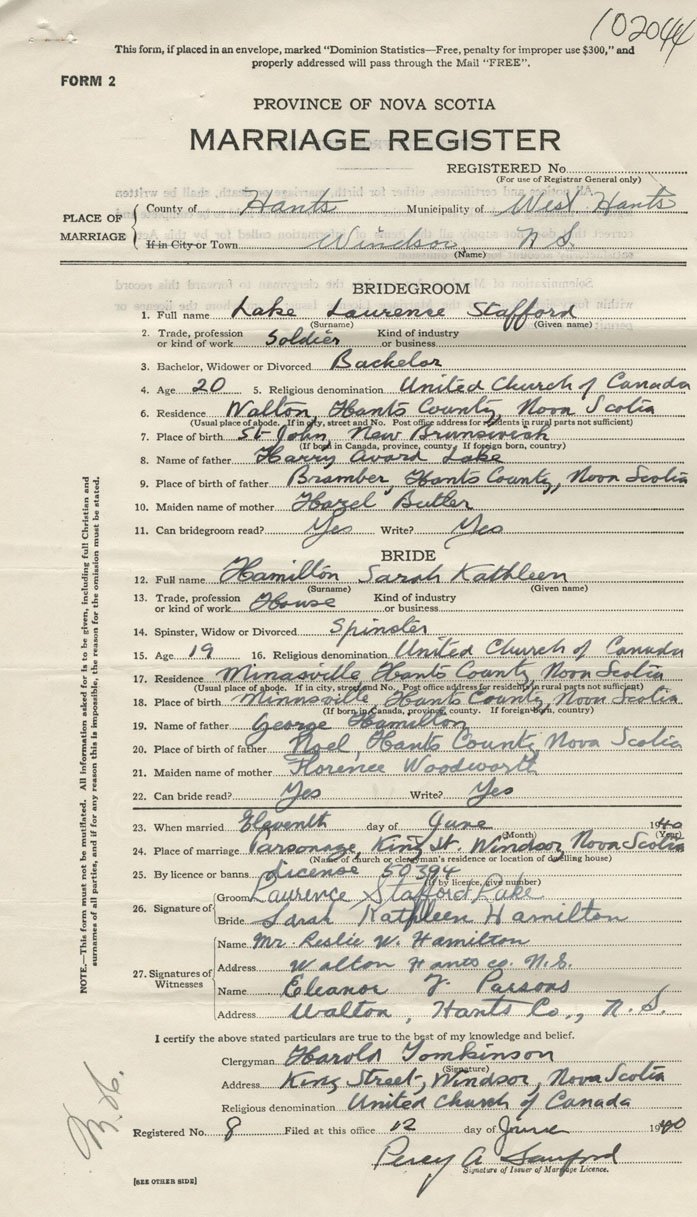 102044
This form, if placed in an envelope, marked "Dominion Statistics—Free, penalty for improper use $300," and
properly addressed will pass through the Mail "FREE".
FORM 2
PROVINCE OF NOVA SCOTIA
MARRIAGE REGISTER
REGISTERED No.
(For use of Registrar General only)
PLACE OF MARRIAGE
County of Hants Municipality of West Hants
If in City or Town Windsor N S.
(Name)
BRIDEGROOM
1. Full name Lake Laurence Stafford
(Surname) (Given name)
2. Trade, profession or kind of work Soldier Kind of industry or business
3. Bachelor, Widower or Divorced Bachelor
4. Age 20 5. Religious denomination United Church of Canada
6. Residence Walton, Hants County, Nova Scotia
(Usual place of abode. If in city, street and No. Post office address for residents in rural parts not sufficient)
7. Place of birth St John, New Brunswick
(If born in Canada, province, county. If foreign born, country)
8. Name of father Harry Avard Lake
9. Place of birth of father Bramber, Hants County, Nova Scotia
10. Maiden name of mother Hazel Butler
11. Can bridegroom read? Yes Write? Yes
BRIDE
12. Full name Hamilton Sarah Kathleen
(Surname) (Given name)
13. Trade, profession or kind of work House Kind of industry or business
14. Spinster, Widow or Divorced Spinster
15. Age 19 16. Religious denomination United Church of Canada
17. Residence Minasville, Hants County, Nova Scotia
(Usual place of abode. If in city, street and No. Post office address for residents in rural parts not sufficient)
18. Place of birth Minnsville, Hants County, Nova Scotia
(If born in Canada, province, county. If foreign born, country)
19. Name of father George Hamilton
20. Place of birth of father Noel, Hants County, Nova Scotia
21. Maiden name of mother Florence Woodworth
22. Can bride read? Yes Write? Yes
23. When married Eleventh day of June 1940
(Month) (Year)
24. Place of marriage Parsonage, King St. Windsor, Nova Scotia
(Name of church or clergyman's residence or location of dwelling house)
25. By licence or banns License 50394
(If by licence, give number)
26. Signature of
Groom Laurence Stafford Lake
Bride Sarah Kathleen Hamilton
27. Signatures of Witnesses
Name Mr. Leslie W. Hamilton
Address Walton Hants co. N.S.
Name Eleanor J. Parsons
Address Walton, Hants Co., N. S.
I certify the above stated particulars are true to the best of my knowledge and belief.
Clergyman Harold Tomkinson
(Signature)
Address King Street, Windsor, Nova Scotia
Religious denomination United Church of Canada
Registered No. 8 Filed at this office 12 day of June 1940
Percy A Sanford
Signature of Issuer of Marriage Licence.
[SEE OTHER SIDE]
NOTE.—This form must not be mutilated. All information asked for is to be given, including full Christian and
surnames of all parties, and if for any reason this is impossible, the reason for the omission must be stated.